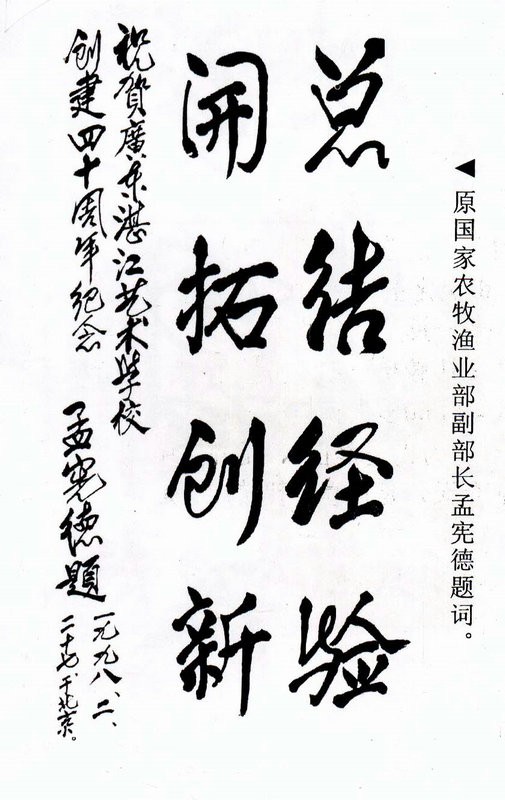 ◀原国家农牧渔业部副部长孟宪德题词。
总结经验
开拓创新
祝贺廣东湛江艺术学校
创建四十周年纪念
孟宪德題
一九九八、二、
二十七于北京。